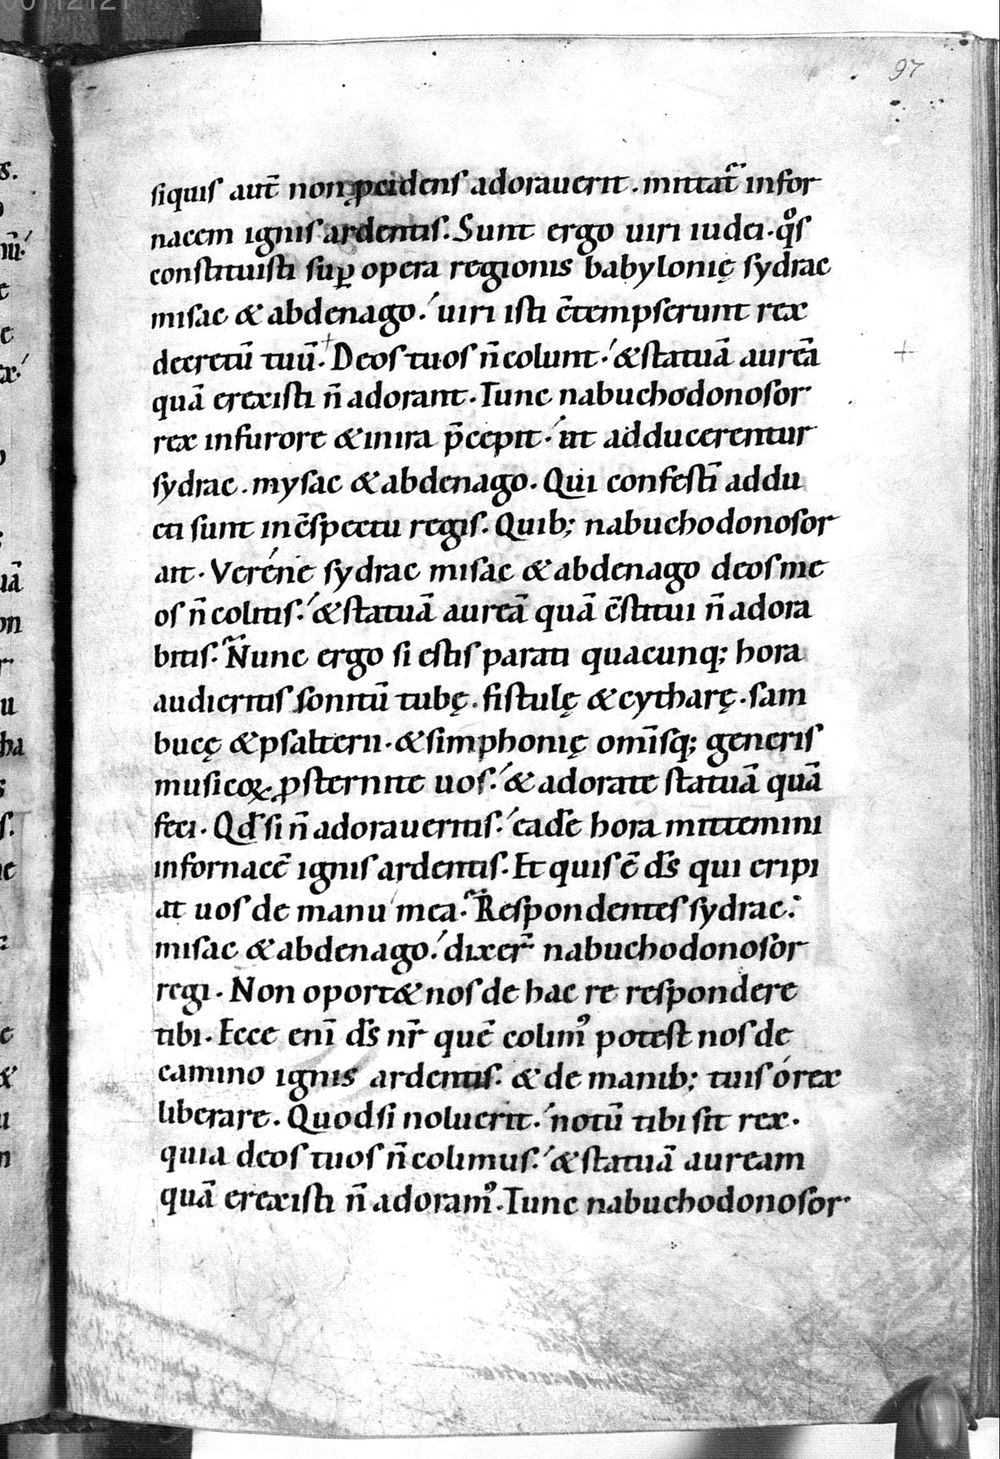 00112121
97
siquis aut̄ non ꝓcidens adorauerit. mittat̄ infor
nacem ignis ardentis. Sunt ergo uiri iudei. qͦs
constituisti suꝑ opera regionis babylonię sydrac
misac & abdenago. uiri isti c̄tempserunt rex
decretū tuū. Deos tuos n̄ colunt. & statuā aureā
quā erexisti n̄ adorant. Tunc nabuchodonosor
rex infurore & inira p̄cepit. ut adducerentur
sydrac. mysac & abdenago. Qui confestī addu
cti sunt inc̄spectu regis. Quib; nabuchodonosor
ait. Veréne sydrac misac & abdenago deos me
os n̄ colitis. & statuā aureā quā c̄stitui n̄ adora
bitis. Nunc ergo si estis parati quacunq; hora
audieritis sonitū tubę. fistulę & cytharę. sam
bucę & psalterii. & simphonię omīsq; generis
musicoꝝ. ꝓsternite uos. & adorate statuā quā
feci. Qd̄ si n̄ adoraueritis. eadē hora mittemini
infornacē ignis ardentis. Et quis ē d̄s qui eripi
at uos de manu mea. Respondentes sydrac.
misac & abdenago. dixer̄ nabuchodonosor
regi. Non oport& nos de hac re respondere
tibi. Ecce enī d̄s nr̄ quē colim᾿ potest nos de
camino ignis ardentis. & de manib; tuis ó rex
liberare. Quodsi noluerit. notū tibi sit rex.
quia deos tuos n̄ colimus. & statuā auream
quā erexisti n̄ adoram᾿. Tunc nabuchodonosor